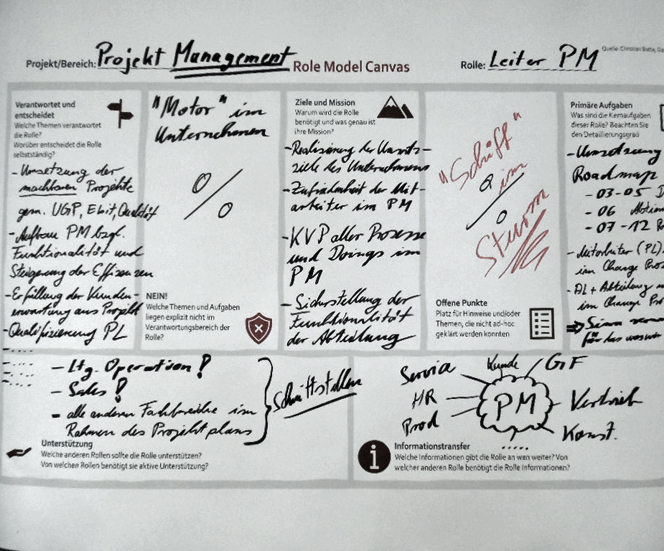 Quelle: Christian Botta, Da
Projekt/Bereich: Projekt Management
Role Model Canvas
Rolle: Leiter PM
Verantwortet und
entscheidet
Welche Themen verantwortet
die Rolle?
Worüber entscheidet die Rolle
selbständig?
- Umsetzung der
machbaren Projekte
gem. UGP, Ebit, Qualität
- Aufbau PM bzgl.
Funktionalität und
Steigerung der Effizienz
- Erfüllung der Kunden-
erwartung aus Projekt
- Qualifizierung PL
"Motor" im
Unternehmen
0/0
NEIN!
Welche Themen und Aufgaben
liegen explizit nicht im
Verantwortungsbereich der
Rolle?
Ziele und Mission
Warum wird die Rolle
benötigt und was genau ist
ihre Mission?
- Realisierung der
ziele des Unternehmens
- Zufriedenheit der Mit-
arbeiter im PM
- KVP aller Prozesse
und Doings im
PM
- Sicherstellung der
Funktionalität
der Abteilung
"Schiff"
im
Sturm
0/0
Offene Punkte
Platz für Hinweise und/oder
Themen, die nicht ad-hoc
geklärt werden konnten
Primäre Aufgaben
Was sind die Kernaufgaben
dieser Rolle? Beachten Sie
den Detaillierungsgrad
- Umsetzung
Roadmap
- 03-05
- 06
- 07-12
- Mitarbeiter (PL)
im Change Proz
- AL + Abteilung
im Change Pro
- Ltg. Operation!
- Sales!
- alle anderen Fachbereiche im
Rahmen des Projektplans
Schnittstellen
Unterstützung
Welche anderen Rollen sollte die Rolle unterstützen?
Von welchen Rollen benötigt sie aktive Unterstützung?
Service
Kunde
GF
HR
PM
Vertrieb
Prod
Konst.
.....
Informationstransfer
Welche Informationen gibt die Rolle an wen weiter? Von
welcher anderen Rolle benötigt die Rolle Informationen?